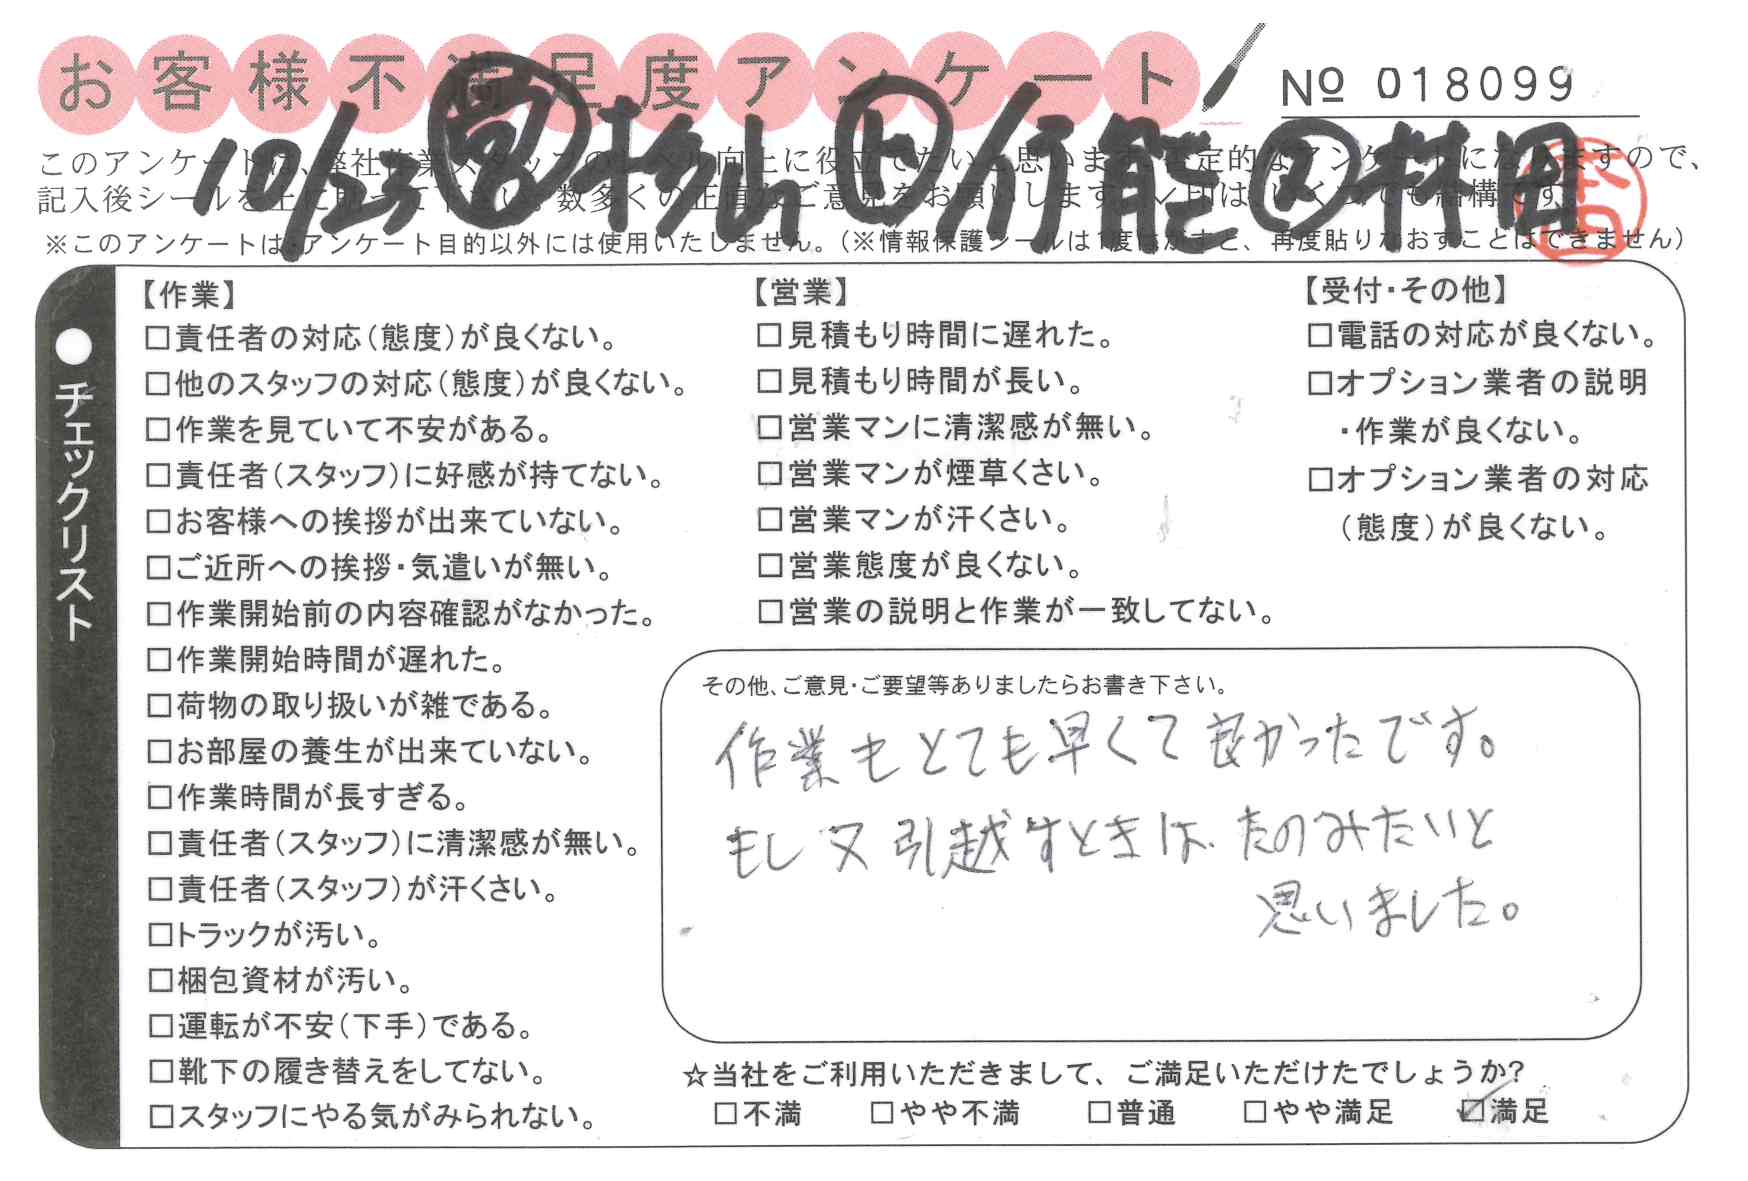 お客様不満足度アンケート
№ 018099
10/23 営 杉山 ト 行能 ス 林田
このアンケートは、弊社作業スタッフのレベル向上に役立てたいと思います。否定的なアンケートになりますので、
記入後シールを上に貼って下さい。数多くの正直なご意見をお願いします。✓印は、いくつでも結構です。
※このアンケートは、アンケート目的以外には使用いたしません。(※情報保護シールは1度はがすと、再度貼りなおすことはできません)
●チェックリスト
【作業】
□責任者の対応(態度)が良くない。
□他のスタッフの対応(態度)が良くない。
□作業を見ていて不安がある。
□責任者(スタッフ)に好感が持てない。
□お客様への挨拶が出来ていない。
□ご近所への挨拶・気遣いが無い。
□作業開始前の内容確認がなかった。
□作業開始時間が遅れた。
□荷物の取り扱いが雑である。
□お部屋の養生が出来ていない。
□作業時間が長すぎる。
□責任者(スタッフ)に清潔感が無い。
□責任者(スタッフ)が汗くさい。
□トラックが汚い。
□梱包資材が汚い。
□運転が不安(下手)である。
□靴下の履き替えをしてない。
□スタッフにやる気がみられない。
【営業】
□見積もり時間に遅れた。
□見積もり時間が長い。
□営業マンに清潔感が無い。
□営業マンが煙草くさい。
□営業マンが汗くさい。
□営業態度が良くない。
□営業の説明と作業が一致してない。
【受付・その他】
□電話の対応が良くない。
□オプション業者の説明
・作業が良くない。
□オプション業者の対応
(態度)が良くない。
その他、ご意見・ご要望等ありましたらお書き下さい。
作業もとても早くて良かったです。
もし又引越すときは、たのみたいと
思いました。
☆当社をご利用いただきまして、ご満足いただけたでしょうか?
□不満 □やや不満 □普通 □やや満足 ☑満足